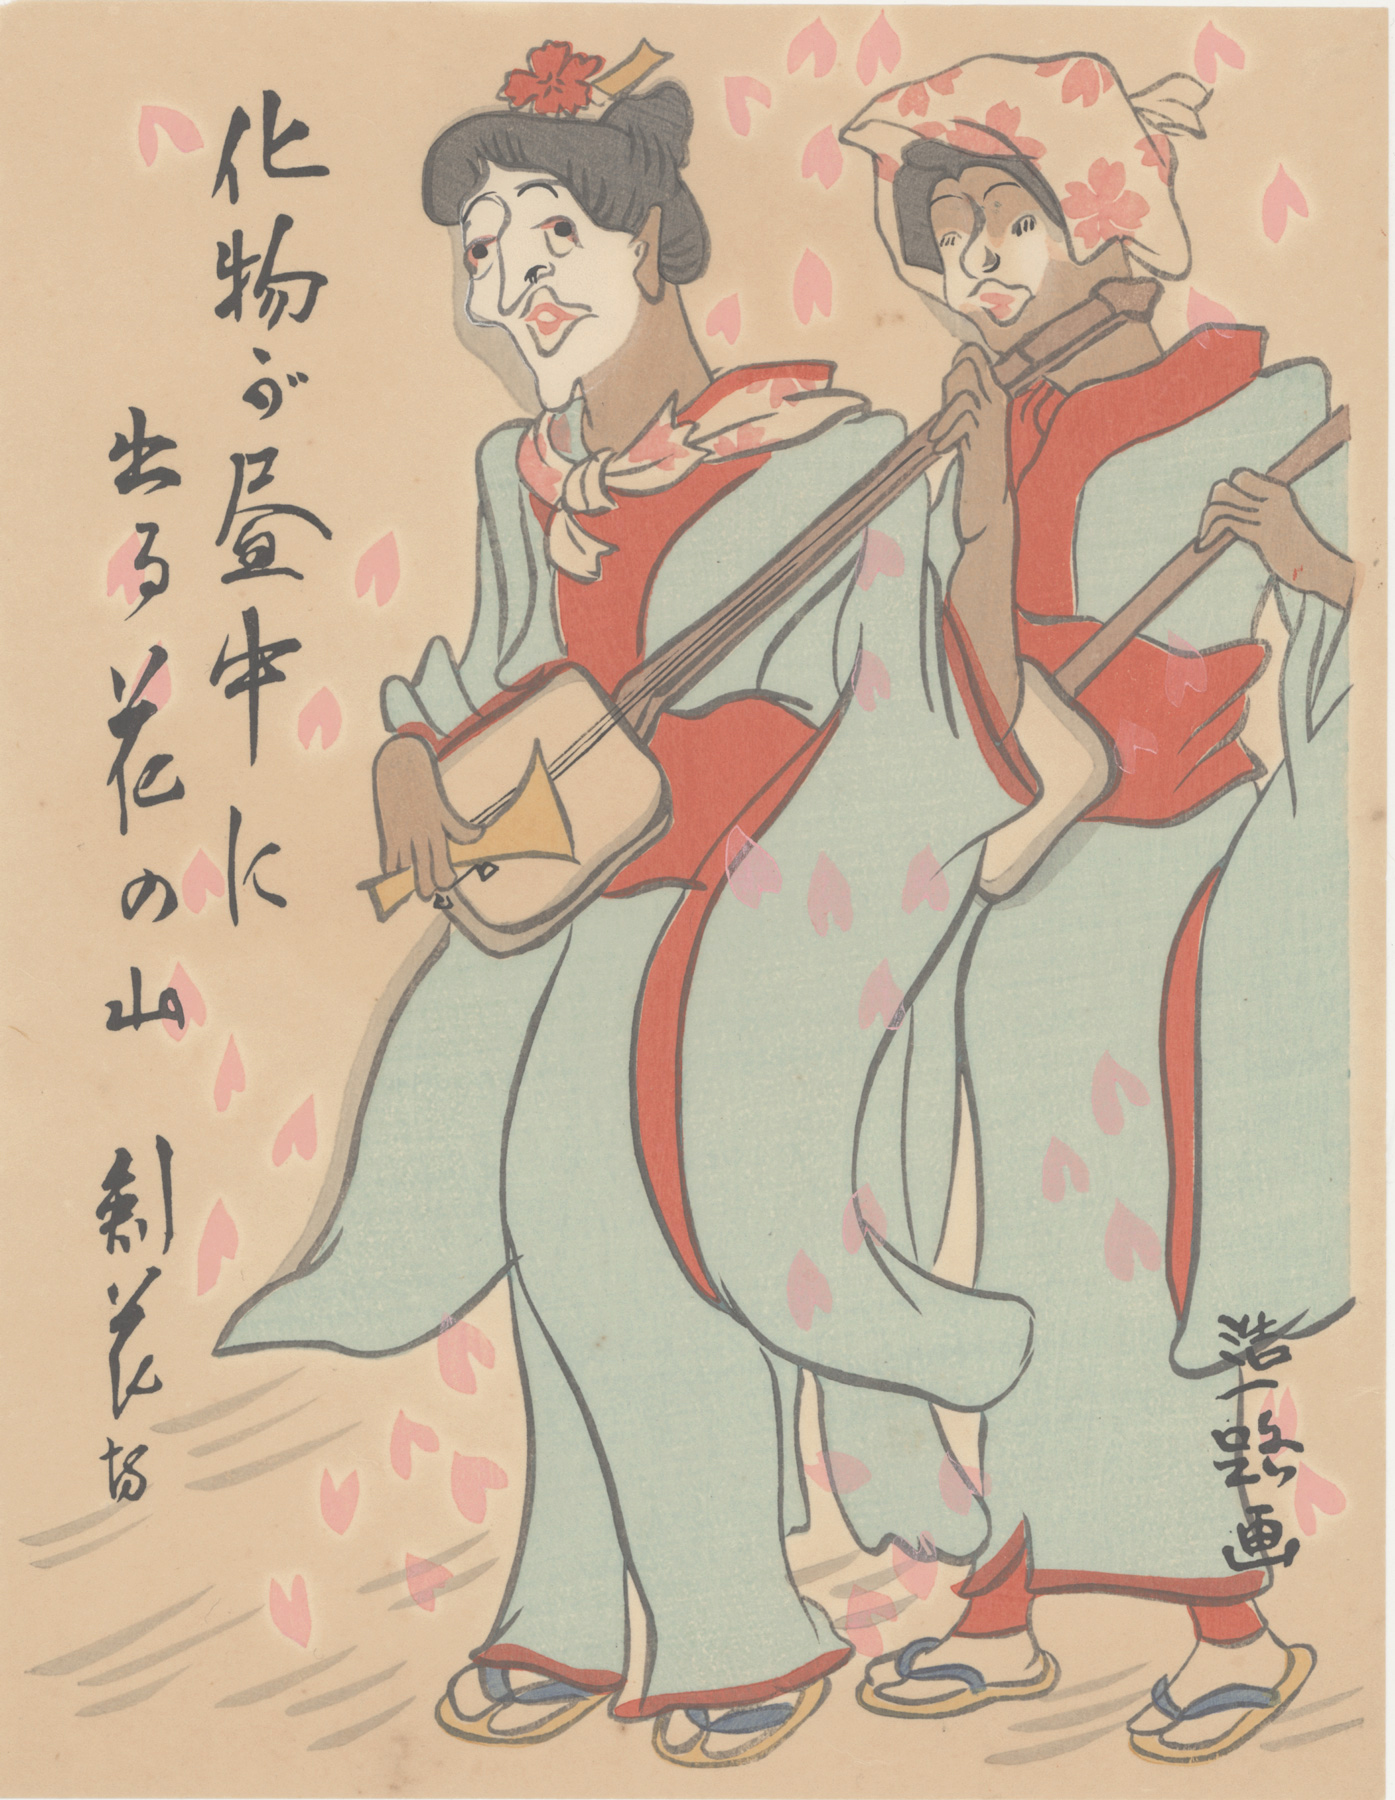 化物が昼中に
出る花の山
剣花坊
浩一路画